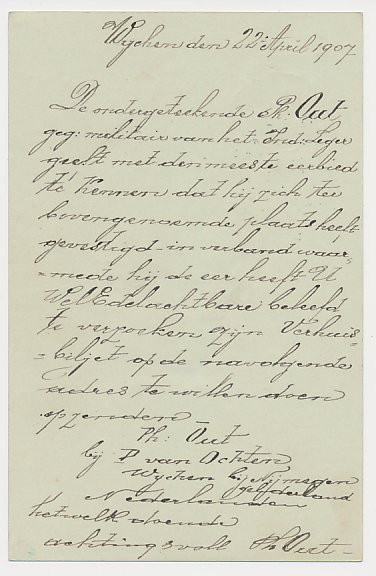 Wychen den 22 April 1907
De ondergeteekende Ph: Out,
geg: militair van het Ind: Leger
geeft met den meeste eerbied
te kennen dat hij zich ter
bovengenoemde plaats heeft
gevestigd in verband waar=
=mede hij de eer heeft U
WelEdelachtbare beleefd
te verzoeken zijn Verhuis=
=biljet op de navolgende
adres te willen doen
opzenden
Ph: Out
bij P van Ochten
Wychen bij Nijmegen
Gelderland
Nederlanden
hetwelk doende
achtingsvoll Ph Out-